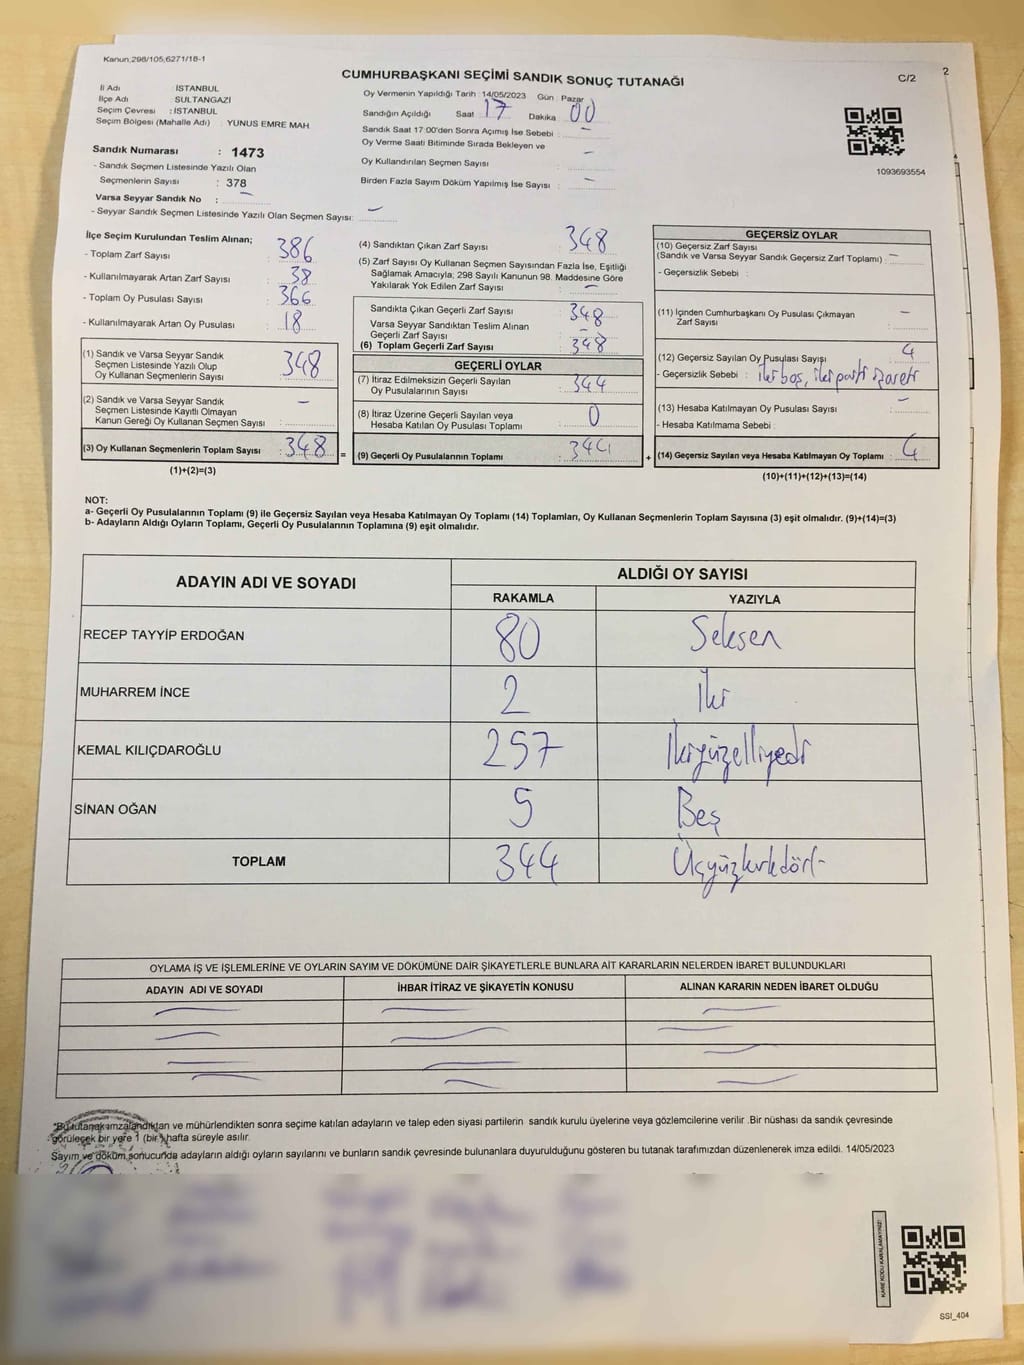 Kanun,298/105,6271/18-1
2
CUMHURBAŞKANI SEÇİMİ SANDIK SONUÇ TUTANAĞI
C/2
İl Adı : İSTANBUL
İlçe Adı : SULTANGAZİ
Seçim Çevresi : İSTANBUL
Seçim Bölgesi (Mahalle Adı) : YUNUS EMRE MAH.
Oy Vermenin Yapıldığı Tarih : 14/05/2023 Gün : Pazar
Sandığın Açıldığı Saat 17 Dakika 00
Sandık Saat 17:00'den Sonra Açılmış İse Sebebi : -
Oy Verme Saati Bitiminde Sırada Bekleyen ve
Oy Kullandırılan Seçmen Sayısı : -
Birden Fazla Sayım Döküm Yapılmış İse Sayısı : -
1093693554
Sandık Numarası : 1473
- Sandık Seçmen Listesinde Yazılı Olan
Seçmenlerin Sayısı : 378
Varsa Seyyar Sandık No : -
- Seyyar Sandık Seçmen Listesinde Yazılı Olan Seçmen Sayısı: -
İlçe Seçim Kurulundan Teslim Alınan;
- Toplam Zarf Sayısı : 386
- Kullanılmayarak Artan Zarf Sayısı : 38
- Toplam Oy Pusulası Sayısı : 366
- Kullanılmayarak Artan Oy Pusulası : 18
(1) Sandık ve Varsa Seyyar Sandık
Seçmen Listesinde Yazılı Olup
Oy Kullanan Seçmenlerin Sayısı : 348
(2) Sandık ve Varsa Seyyar Sandık
Seçmen Listesinde Kayıtlı Olmayan
Kanun Gereği Oy Kullanan Seçmen Sayısı : -
(3) Oy Kullanan Seçmenlerin Toplam Sayısı : 348
(1)+(2)=(3)
=
(4) Sandıktan Çıkan Zarf Sayısı : 348
(5) Zarf Sayısı Oy Kullanan Seçmen Sayısından Fazla İse, Eşitliği
Sağlamak Amacıyla; 298 Sayılı Kanunun 98. Maddesine Göre
Yakılarak Yok Edilen Zarf Sayısı : -
Sandıkta Çıkan Geçerli Zarf Sayısı : 348
Varsa Seyyar Sandıktan Teslim Alınan
Geçerli Zarf Sayısı : -
(6) Toplam Geçerli Zarf Sayısı : 348
GEÇERLİ OYLAR
(7) İtiraz Edilmeksizin Geçerli Sayılan
Oy Pusulalarının Sayısı : 344
(8) İtiraz Üzerine Geçerli Sayılan veya
Hesaba Katılan Oy Pusulası Toplamı : 0
(9) Geçerli Oy Pusulalarının Toplamı : 344
+
GEÇERSİZ OYLAR
(10) Geçersiz Zarf Sayısı
(Sandık ve Varsa Seyyar Sandık Geçersiz Zarf Toplamı) : -
- Geçersizlik Sebebi :
(11) İçinden Cumhurbaşkanı Oy Pusulası Çıkmayan
Zarf Sayısı : -
(12) Geçersiz Sayılan Oy Pusulası Sayısı : 4
- Geçersizlik Sebebi : iki boş, iki parti işareti
(13) Hesaba Katılmayan Oy Pusulası Sayısı : -
- Hesaba Katılmama Sebebi :
(14) Geçersiz Sayılan veya Hesaba Katılmayan Oy Toplamı : 4
(10)+(11)+(12)+(13)=(14)
NOT:
a- Geçerli Oy Pusulalarının Toplamı (9) ile Geçersiz Sayılan veya Hesaba Katılmayan Oy Toplamı (14) Toplamları, Oy Kullanan Seçmenlerin Toplam Sayısına (3) eşit olmalıdır. (9)+(14)=(3)
b- Adayların Aldığı Oyların Toplamı, Geçerli Oy Pusulalarının Toplamına (9) eşit olmalıdır.
ADAYIN ADI VE SOYADI
ALDIĞI OY SAYISI
RAKAMLA YAZIYLA
RECEP TAYYİP ERDOĞAN 80 Seksen
MUHARREM İNCE 2 İki
KEMAL KILIÇDAROĞLU 257 İkiyüzelliyedi
SİNAN OĞAN 5 Beş
TOPLAM 344 Üçyüzkırkdört
OYLAMA İŞ VE İŞLEMLERİNE VE OYLARIN SAYIM VE DÖKÜMÜNE DAİR ŞİKAYETLERLE BUNLARA AİT KARARLARIN NELERDEN İBARET BULUNDUKLARI
ADAYIN ADI VE SOYADI İHBAR İTİRAZ VE ŞİKAYETİN KONUSU ALINAN KARARIN NEDEN İBARET OLDUĞU
*Bu tutanak imzalandıktan ve mühürlendikten sonra seçime katılan adayların ve talep eden siyasi partilerin sandık kurulu üyelerine veya gözlemcilerine verilir .Bir nüshası da sandık çevresinde
görülecek bir yere 1 (bir) hafta süreyle asılır.
Sayım ve döküm sonucunda adayların aldığı oyların sayılarını ve bunların sandık çevresinde bulunanlara duyurulduğunu gösteren bu tutanak tarafımızdan düzenlenerek imza edildi. 14/05/2023
KARE KODU KARALAMAYINIZ!
SSI_404